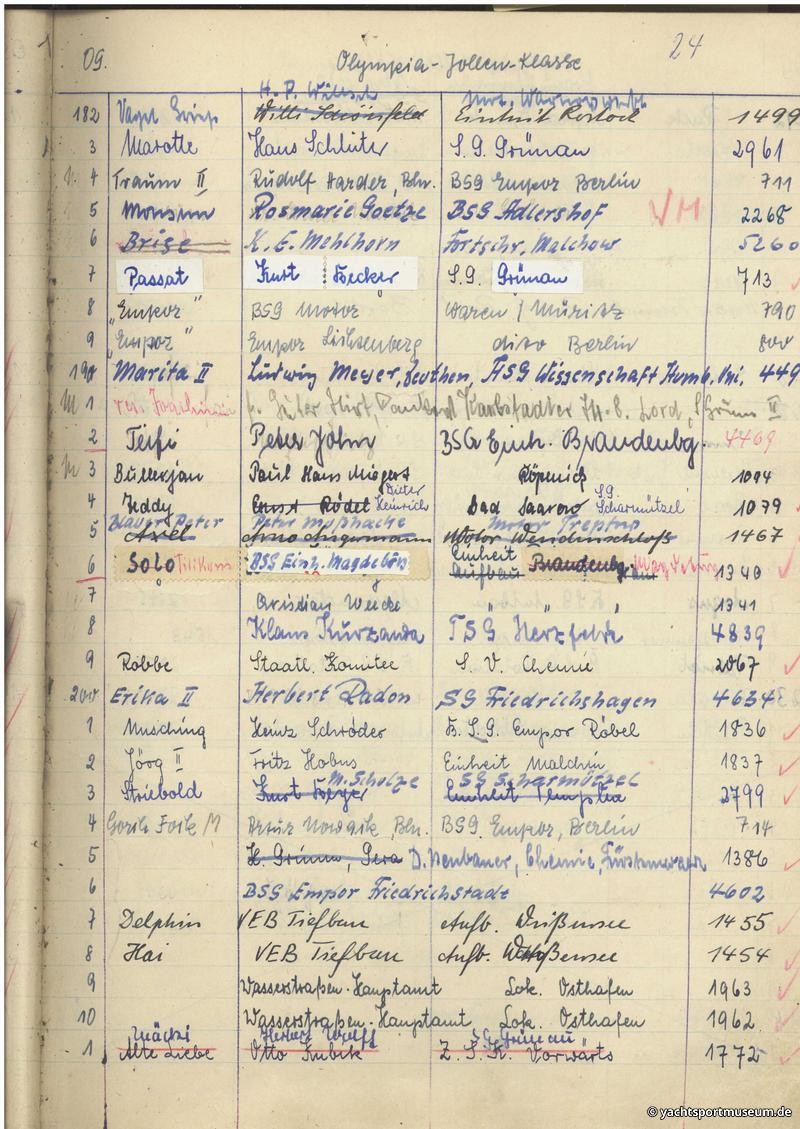 09. Olympia-Jollen-Klasse 24
H. P. Warnowwerft
182 Willi Schönfeld Einheit Rostock 1499
3 Marotte Hans Schlüter S.G. Grünau 2961
4 Traum II Rudolf Harder, Bln. BSG Empor Berlin 711
5 Monsun Rosmarie Goetze BSG Adlershof VM 2268
6 Brise K. E. Mehlhorn Fortschr. Malchow 5260
7 Passat Kurt Becker S.G. Grünau 713
8 "Empor" BSG Motor Waren / Müritz 790
9 "Empor" Empor Lichtenberg dito Berlin 800
190 Marita II Ludwig Meyer, Zeuthen, HSG Wissenschaft Humb. Uni. 449
M 1
2 Teifi Peter John BSG Einh. Brandenbg. 4469
M 3 Bullerjan Paul Hans Köpenick 1094
Dieter S.G.
4 Teddy Ernst Rödel Heinrich Bad Saarow Scharmützel 1079
Blauer Peter Peter Motor Treptow
5 Axel Arno Motor Wendenschloß 1467
Einheit
6 Solo BSG Einh. Magdeburg Aufbau Brandenbg. Magdeburg 1340
7 Christian " " 1341
8 Klaus Kurzanda TSG Herzfelde 4839
9 Robbe Staatl. Komitee S. V. Chemie 2067
200 Erika II Herbert Radon SG Friedrichshagen 4634
1 Heinz Schröder B.S.G. Empor Röbel 1836
2 Jörg II Fritz Hobus Einheit Malchin 1837
M. Scholze SG Scharmützel
3 Striebold Kurt Beyer Einheit Templin 2799
4 Gorch Fock M Artur Nowack, Bln. BSG Empor, Berlin 714
5 H. Grimm, Gera D. Neubauer, Chemie, Fürstenwalde 1386
6 BSG Empor Friedrichstadt 4602
7 Delphin VEB Tiefbau Aufb. Weißensee 1455
8 Hai VEB Tiefbau Aufb. Weißensee 1454
9 Wasserstraßen-Hauptamt Lok. Osthafen 1963
10 Wasserstraßen-Hauptamt Lok. Osthafen 1962
Herbert Wulff SG Grünau
1 Alte Liebe Otto Kubik Z.S.K. Vorwärts 1772
© yachtsportmuseum.de